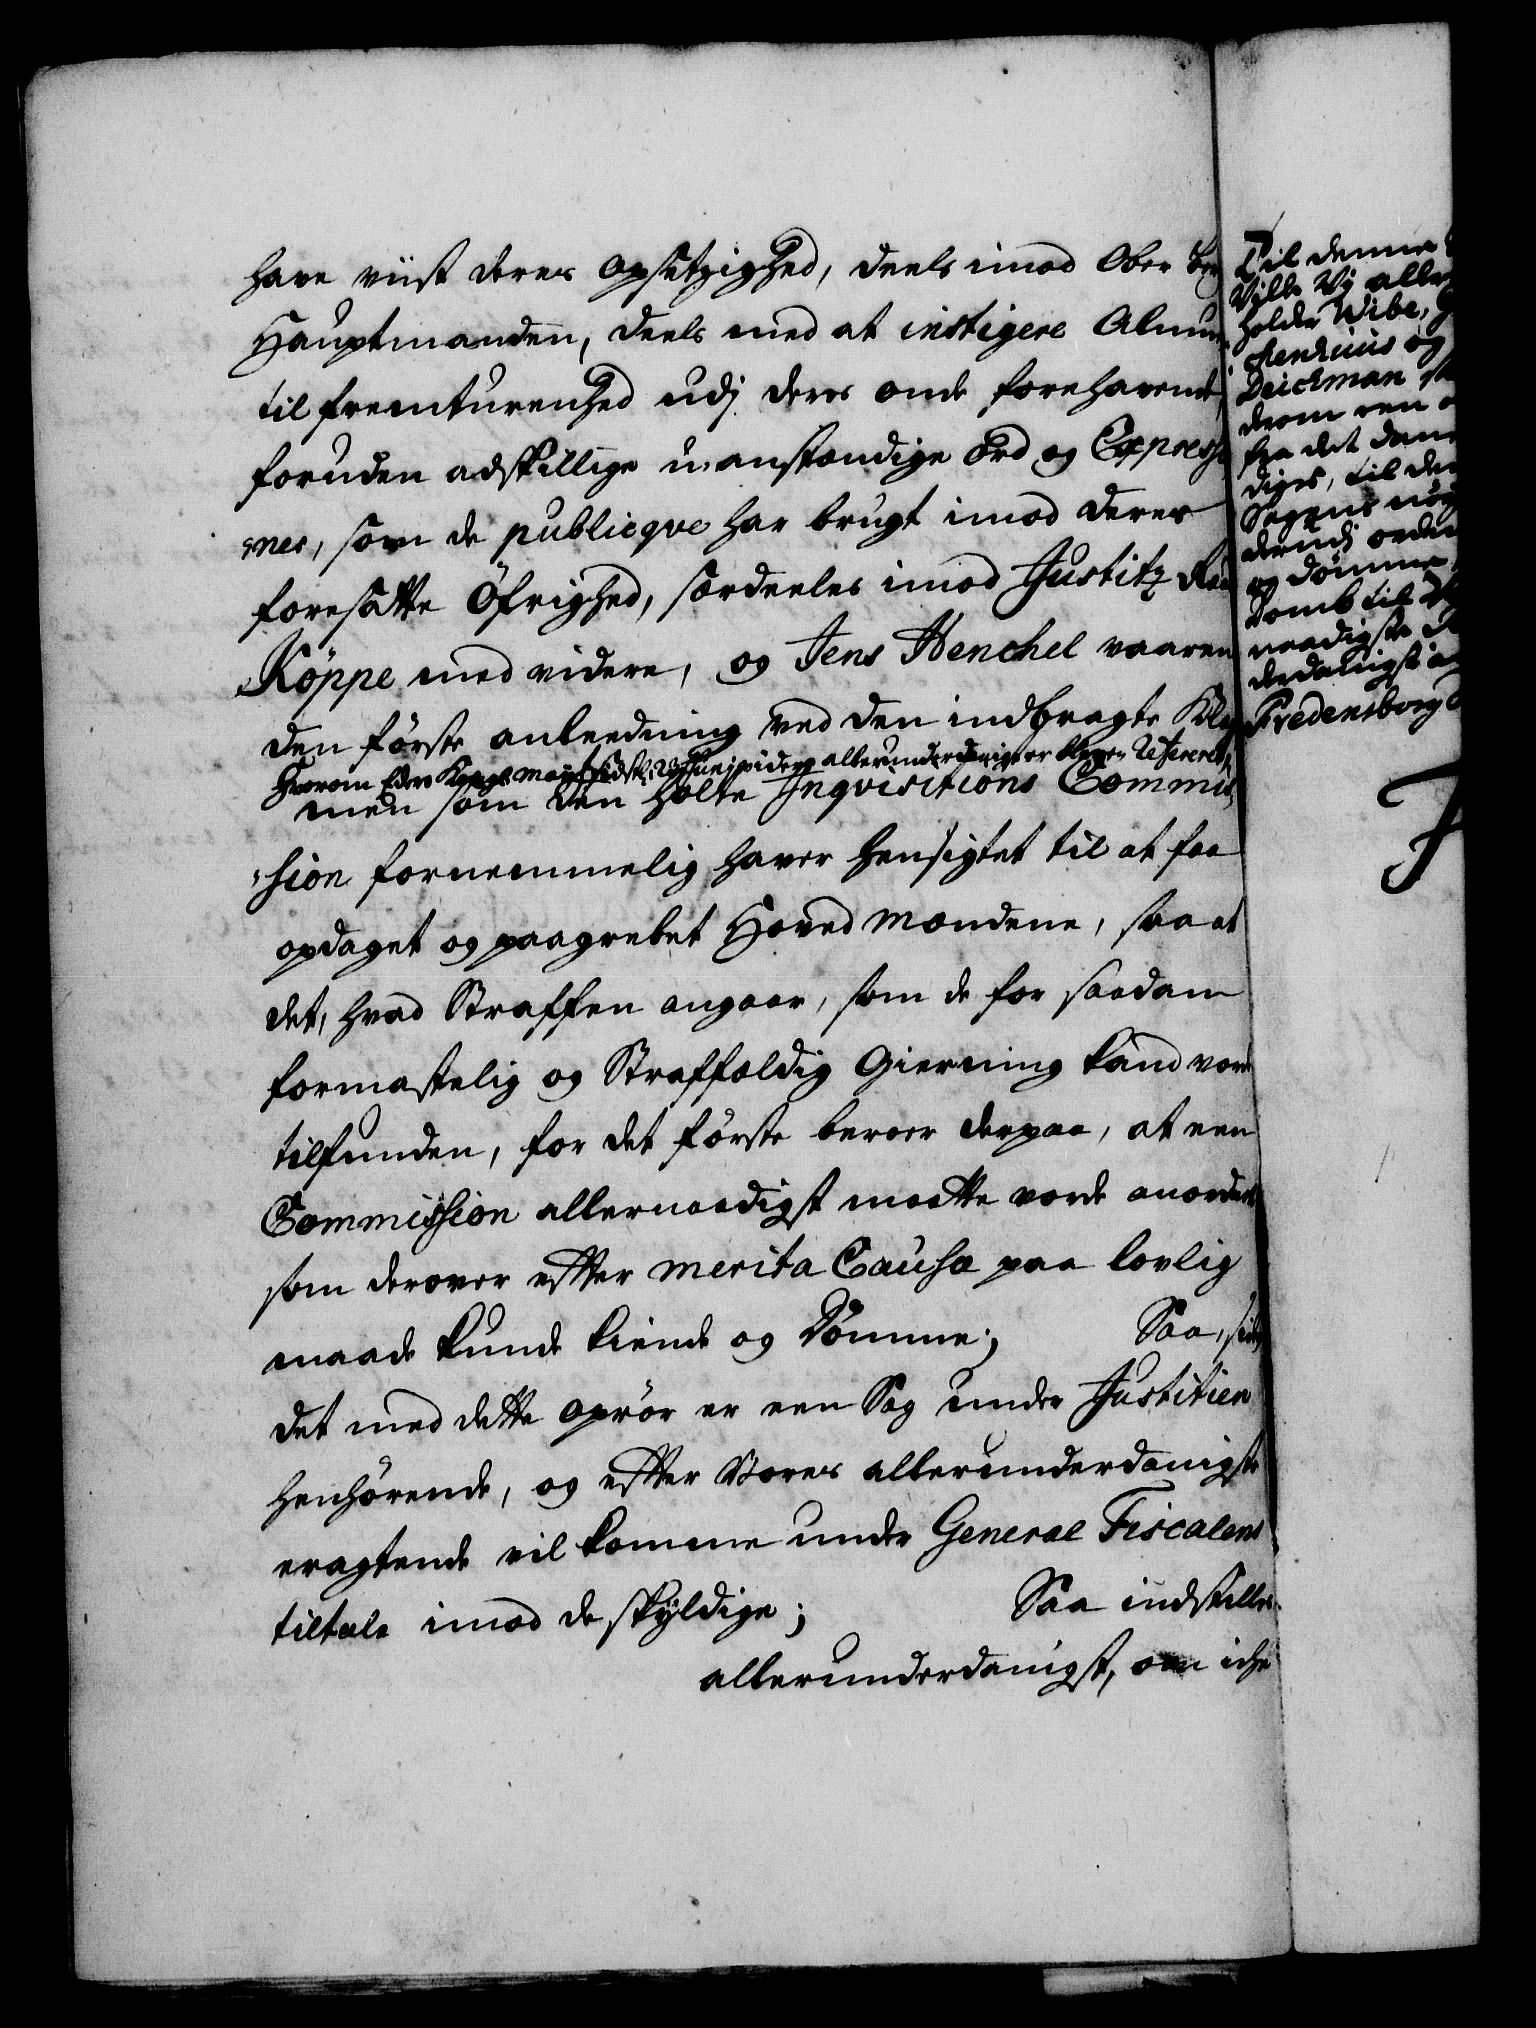 have viist deres opsetzighed, deels imod Ober Berg
Hauptmanden, deels med at instigere Almuen
til fremturenhed udj deres onde forehavende,
foruden adskillige u-anstændige ord og Expressio
nes, som de publicqve har brugt imod deres
foresatte Öfrighed, særdeeles imod Justitz Raad
Köppe med videre, og Jens Henchel vaaren
den förste anleedning ved den indbragte Klage
Hvorom Eders Kongl. Mayst. sidst allerunderdanigst er bleven Refereret,
men som den holte Inqvisitions Commis
sion fornemmelig haver hensigtet til at faa
opdaget og paagrebet Hoved Mændene, saa at
det, hvad Straffen angaar, som de for saadan
formastelig og Straffældig Gierning kand vorde
tilfunden, for det förste beroer derpaa, at een
Commission allernaadigst maatte vorde anordnet
som derover efter merita Causæ paa lovlig
maade kunde kiende og Dömme; Saa, siden
det med dette oprör er een Sag under Justitien
henhörende, og efter Vores allerunderdanigste
eragtende vil komme under General Fiscalens
tiltale imod de skyldige; Saa indstilles
allerunderdanigst, om icke
Til denne
Ville Vj aller
holder Wibe,
Renhuus og
Deichman
derom een
fra det dan
diges, til den
Sagens nöy
derudj orden
og dömme
Domb til
naadigste
derdanigst
Fredensborg